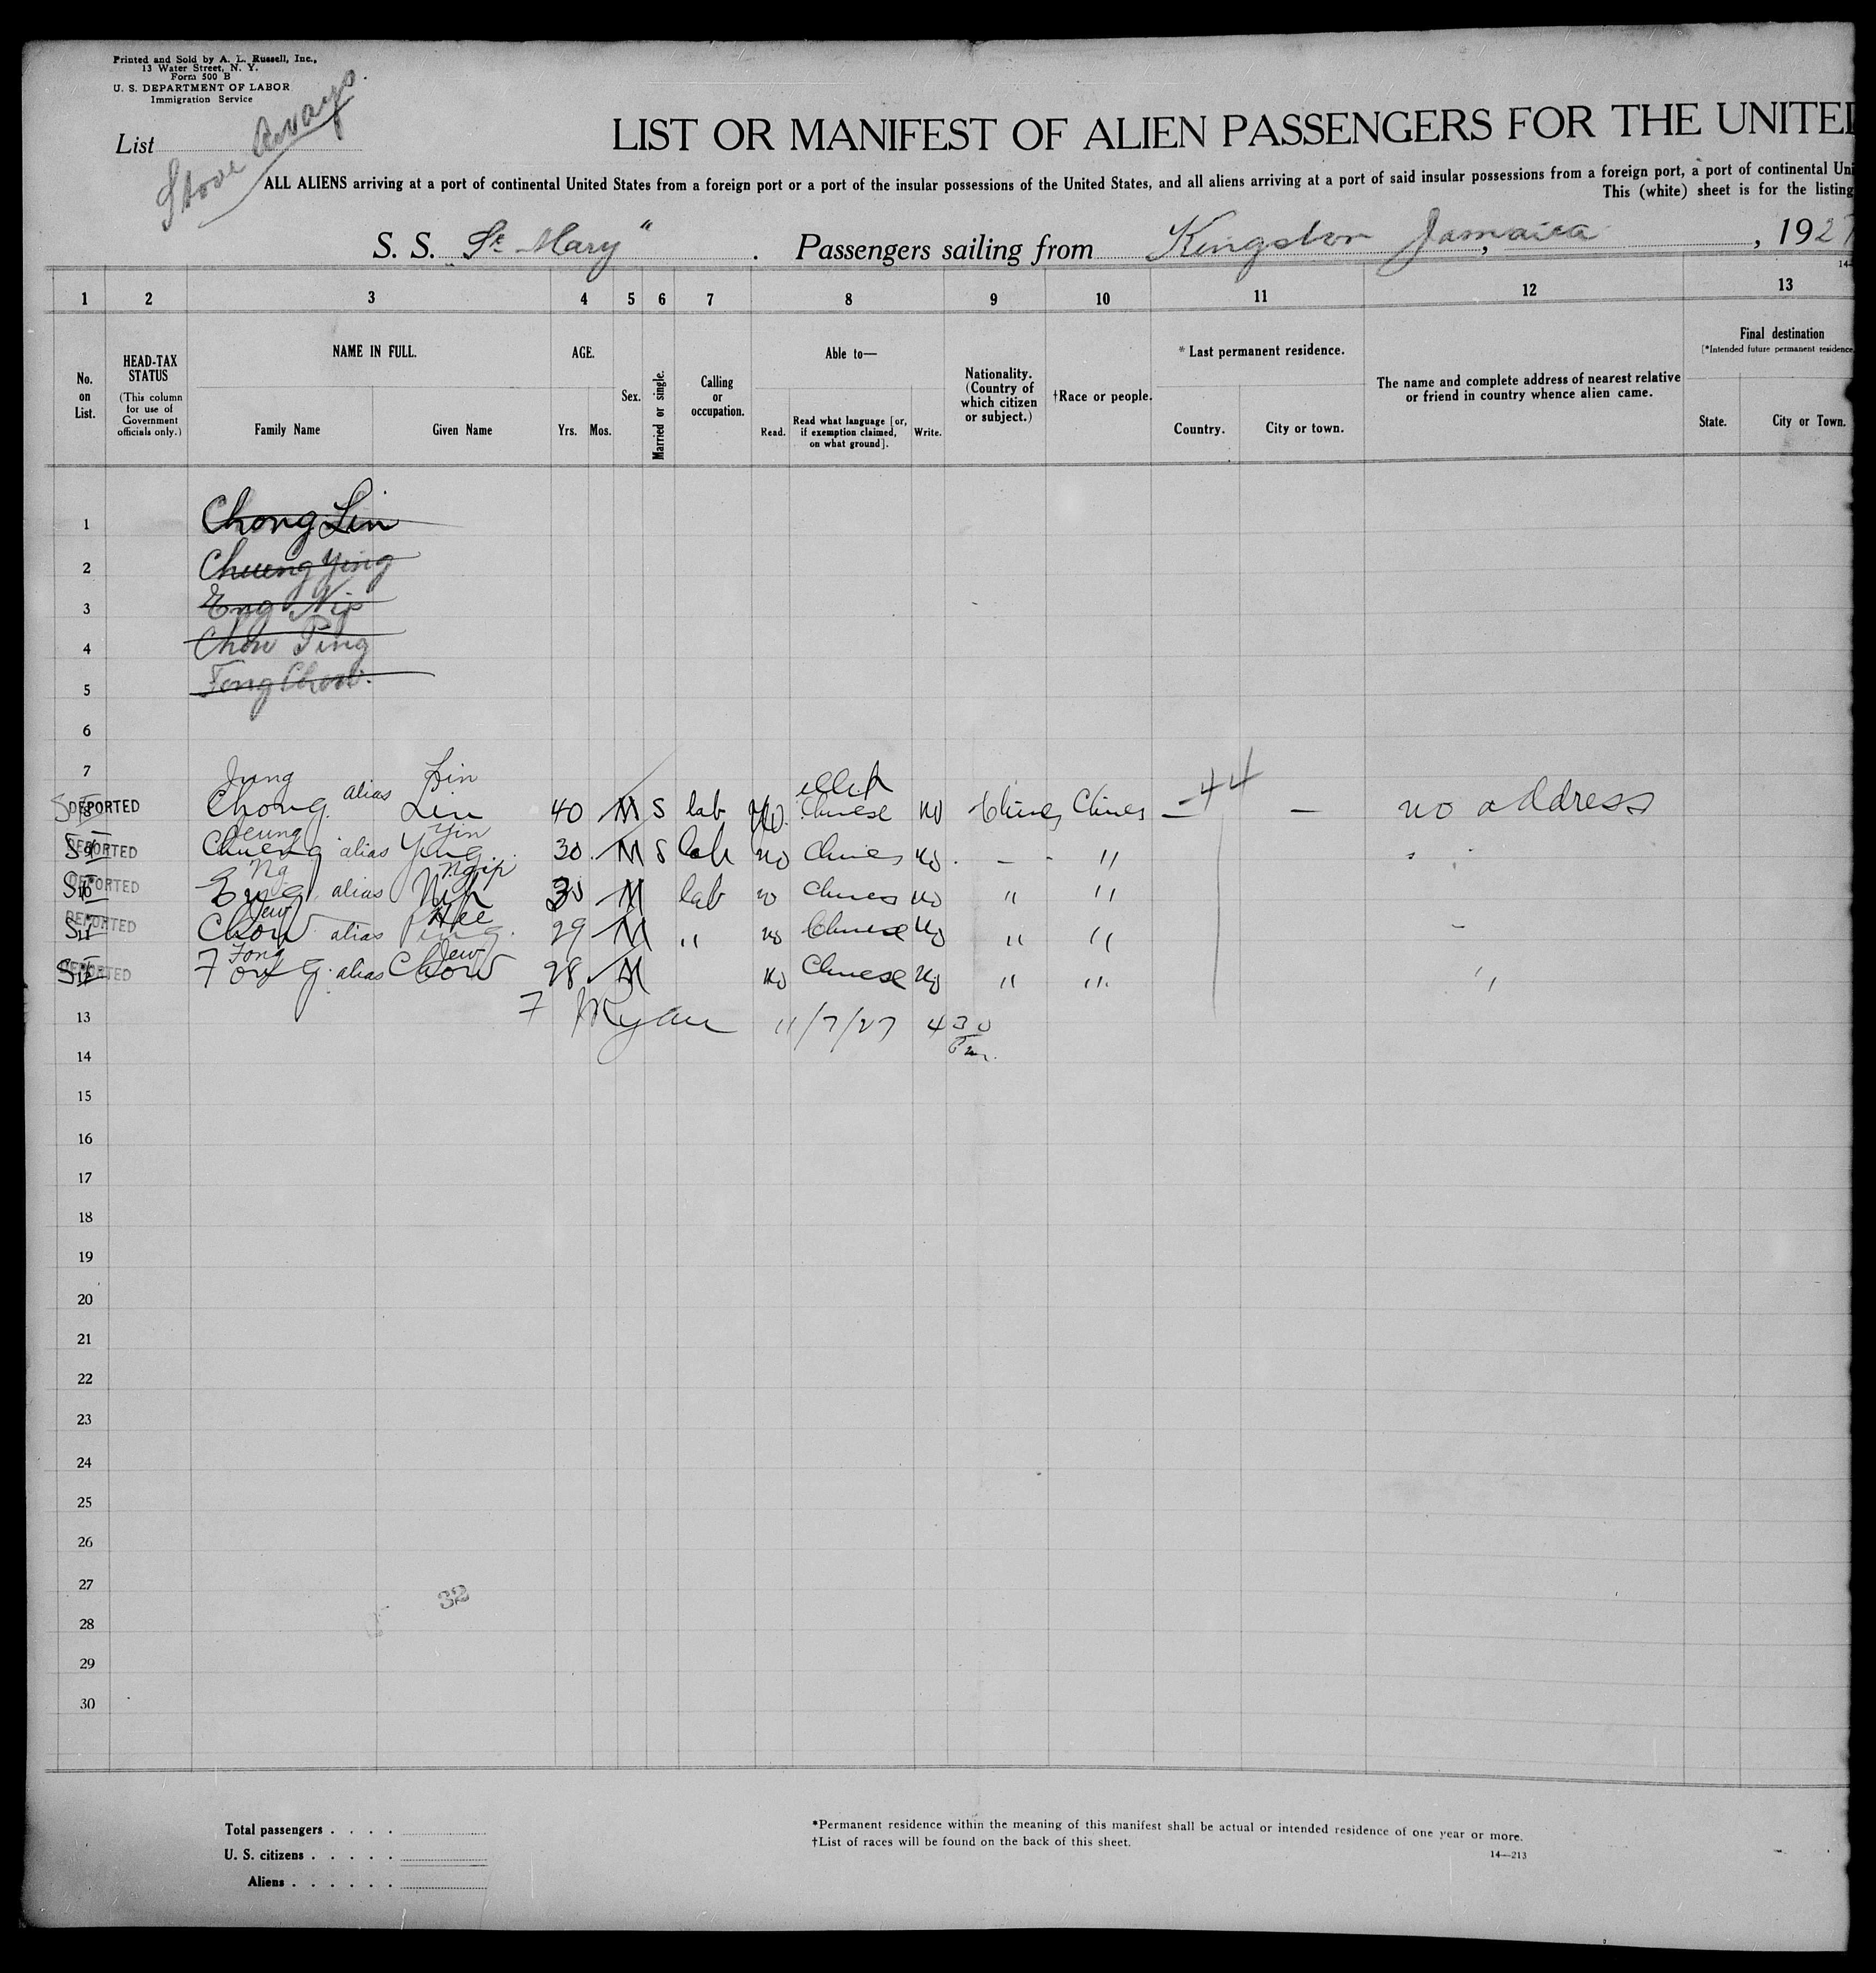 Printed and Sold by A. L. Russell, Inc.,
13 Water Street, N. Y.
Form 500 B
U. S. DEPARTMENT OF LABOR
Immigration Service
List
Stowaways.
LIST OR MANIFEST OF ALIEN PASSENGERS FOR THE UNITED
ALL ALIENS arriving at a port of continental United States from a foreign port or a port of the insular possessions of the United States, and all aliens arriving at a port of said insular possessions from a foreign port, a port of continental Uni
This (white) sheet is for the listing
S. S. "St Mary". Passengers sailing from Kingston Jamaica, 1927
1 2 3 4 5 6 7 8 9 10 11 12 13
No. on List.
HEAD-TAX STATUS
(This column for use of Government officials only.)
NAME IN FULL.
Family Name Given Name
AGE.
Yrs. Mos.
Sex.
Married or single.
Calling or occupation.
Able to—
Read. Read what language [or, if exemption claimed, on what ground]. Write.
Nationality. (Country of which citizen or subject.)
†Race or people.
* Last permanent residence.
Country. City or town.
The name and complete address of nearest relative or friend in country whence alien came.
Final destination
[*Intended future permanent residence
State. City or Town.
1 Chong Lin
2 Cheung Ying
3 Eng Nip
4 Chow Ping
5 Fong Chow.
6
7
Jung Lin
DEPORTED Chong alias Lin 40 M S lab No. Chinese No China Chines — 44 — no address
Yin
DEPORTED Chueng alias Ying 30 M S lab no Chines No. - - "
Ng Ngip
DEPORTED Eng alias Nip 30 M lab no Chines No " "
Jew Hee
DEPORTED Chow alias Ping. 29 M " no Chinese No " "
Fong Jew
DEPORTED Fong alias Chow 28 M No Chinese No " " "
13 F Ryan 11/7/27 4 30 Pm.
14
15
16
17
18
19
20
21
22
23
24
25
26
27
32
28
29
30
Total passengers . . . .
U. S. citizens . . . . .
Aliens . . . . . .
*Permanent residence within the meaning of this manifest shall be actual or intended residence of one year or more.
†List of races will be found on the back of this sheet.
14—213